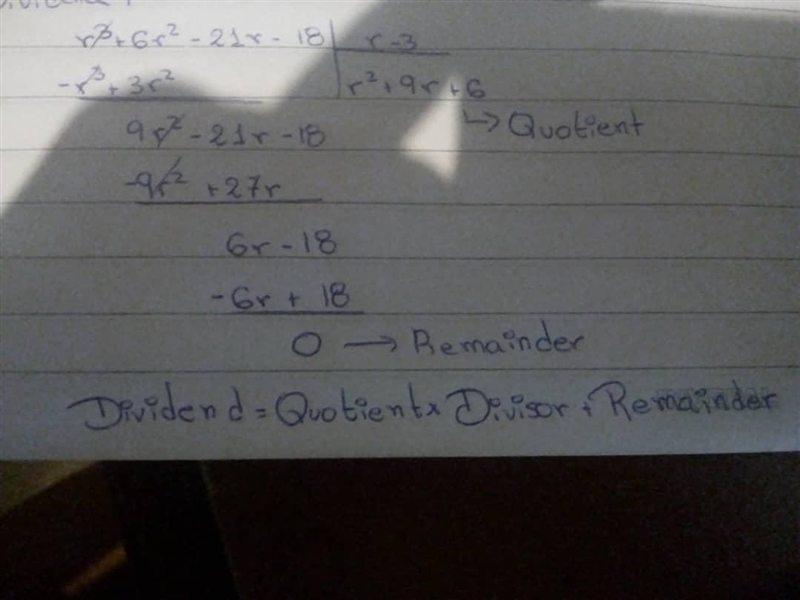 r³ + 6r² - 21r - 18 | r - 3
-r³ + 3r² | r² + 9r + 6
9r² - 21r - 18 ↳ Quotient
-9r² + 27r
6r - 18
-6r + 18
0 → Remainder
Dividend = Quotient x Divisor + Remainder